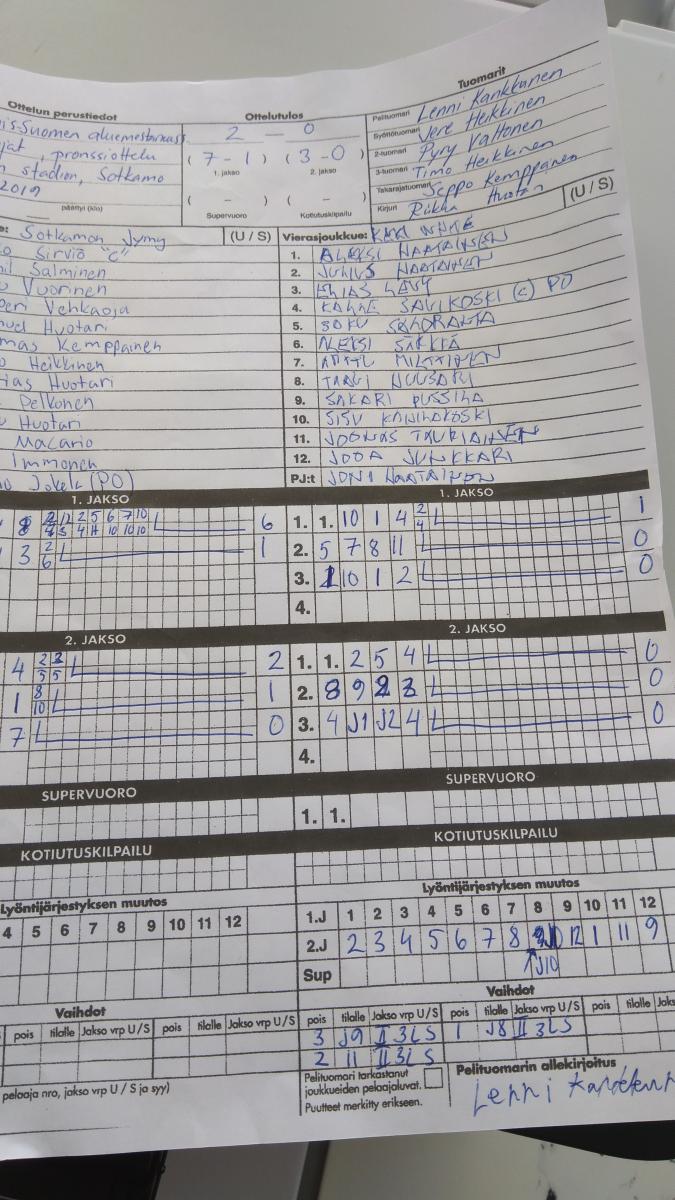 Ottelun perustiedot
is-Suomen aluemestaruus
jat, pronssiottelu
n stadion, Sotkamo
2019
päättyi (klo)
Ottelutulos
2 – 0
( 7 – 1 ) ( 3 – 0 )
1. jakso 2. jakso
( – ) ( – )
Supervuoro Kotiutuskilpailu
Tuomarit
Pelituomari Lenni Kankkunen
Syöttötuomari Vere Heikkinen
2-tuomari Pyry Valtonen
3-tuomari Timo Heikkinen
Takarajatuomari Seppo Kemppanen
Kirjuri Riikka Huotari
(U / S)
e: Sotkamon Jymy (U / S)
o Sirviö "C"
il Salminen
o Vuorinen
peri Vehkaoja
nuel Huotari
mas Kemppainen
o Heikkinen
ias Huotari
Pelkonen
Huotari
Macario
Immonen
o Jokela (PO)
Vierasjoukkue:
1. ALEKSI HAATAINEN
2. JULIUS HAATAINEN
3. ELIAS LEVY
4. SAVIKOSKI (c) PO
5.
6. ALEKSI SÄRKKÄ
7.
8.
9. SAKARI
10. SISU
11. JOONAS TAURIAINEN
12. JOOA JUNKKARI
PJ:t JONI HAATAINEN
1. JAKSO
2 12 2 5 6 7 10 6
4 3 4 11 10 10 10
3 2 1
6
1. JAKSO
1. 1. 10 1 4 2 1
4
2. 5 7 8 11 0
3. 10 1 2 0
4.
2. JAKSO
4 2 2 2
5 5
1 8 1
10
7 0
2. JAKSO
1. 1. 2 5 4 0
2. 8 9 2 3 0
3. 4 J1 J2 4 0
4.
SUPERVUORO
SUPERVUORO
1. 1.
KOTIUTUSKILPAILU
KOTIUTUSKILPAILU
Lyöntijärjestyksen muutos
4 5 6 7 8 9 10 11 12
Lyöntijärjestyksen muutos
1.J 1 2 3 4 5 6 7 8 9 10 11 12
2.J 2 3 4 5 6 7 8 12 1 11 9
Sup J10
Vaihdot
pois tilalle Jakso vrp U/S pois tilalle Jakso vrp U/S
Vaihdot
pois tilalle Jakso vrp U/S pois tilalle Jakso vrp U/S pois tilalle Jakso
3 J9 II 3L S 1 J8 II 3L S
2 11 II 3L S
pelaaja nro, jakso vrp U / S ja syy)
Pelituomari tarkastanut
joukkueiden pelaajaluvat.
Puutteet merkitty erikseen.
Pelituomarin allekirjoitus
Lenni